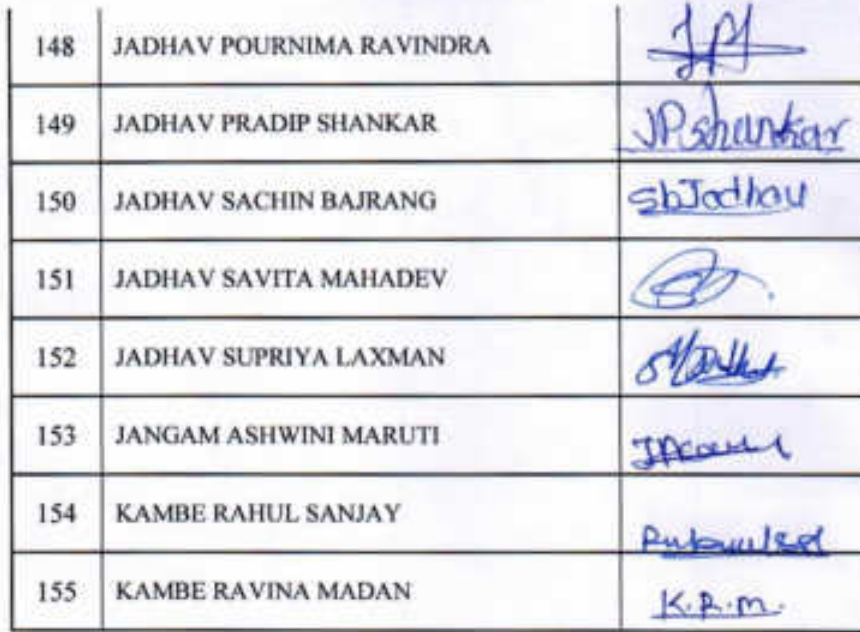 148 JADHAV POURNIMA RAVINDRA
149 JADHAV PRADIP SHANKAR JPshankar
150 JADHAV SACHIN BAJRANG sbJadhav
151 JADHAV SAVITA MAHADEV
152 JADHAV SUPRIYA LAXMAN
153 JANGAM ASHWINI MARUTI
154 KAMBE RAHUL SANJAY
155 KAMBE RAVINA MADAN K.R.m.